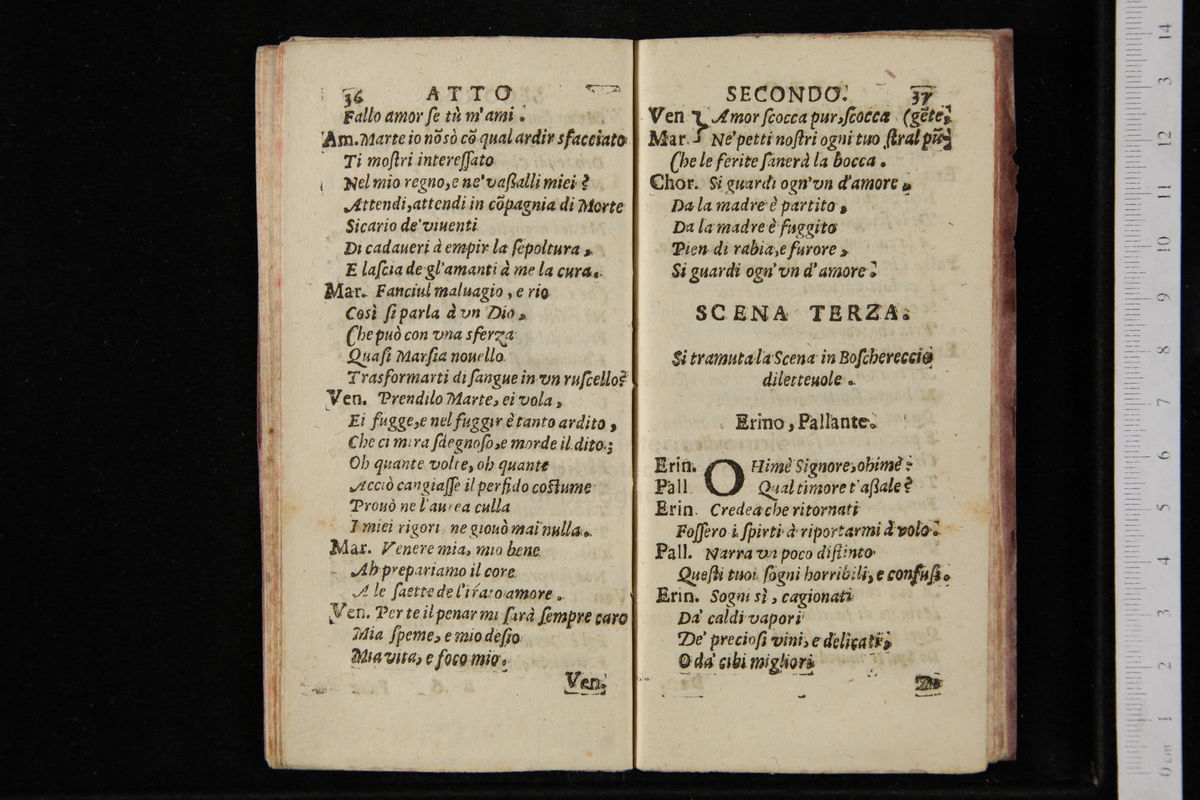 36 ATTO
Fallo amor se tù m'ami.
Am. Marte io nõ sò cõ qual ardir sfacciato
Ti mostri interessato
Nel mio regno, e ne' vaßalli miei?
Attendi, attendi in cõpagnia di Morte
Sicario de' viuenti
Di cadaueri à empir la sepoltura,
E lascia de gl'amanti à me la cura.
Mar. Fanciul maluagio, e rio
Così si parla à vn Dio,
Che può con vna sferza
Quasi Marsia nouello
Trasformarti di sangue in vn ruscello?
Ven. Prendilo Marte, ei vola,
Ei fugge, e nel fuggir è tanto ardito,
Che ci mira sdegnoso, e morde il dito;
Oh quante volte, oh quante
Acciò cangiasse il perfido costume
Prouò ne l'aurea culla
I miei rigori ne giouò mai nulla.
Mar. Venere mia, mio bene
Ah prepariamo il core
A le saette de l'irato amore.
Ven. Per te il penar mi sarà sempre caro
Mia speme, e mio desio
Mia vita, e foco mio.
Ven.
SECONDO. 37
Ven } Amor scocca pur, scocca (gẽte,
Mar. } Ne' petti nostri ogni tuo stral pũ-
Che le ferite sanerà la bocca.
Chor. Si guardi ogn'vn d'amore,
Da la madre è partito,
Da la madre è fuggito
Pien di rabia, e furore,
Si guardi ogn'vn d'amore.
SCENA TERZA.
Si tramuta la Scena in Boschereccio
diletteuole.
Erino, Pallante.
Erin. OHimè Signore, ohimè!
Pall Qual timore t'aßale?
Erin. Credea che ritornati
Fossero i spirti à riportarmi à volo.
Pall. Narra vn poco distinto
Questi tuoi sogni horribili, e confusi.
Erin. Sogni sì, cagionati
Da' caldi vapori
De' preciosi vini, e delicati,
O da' cibi migliori